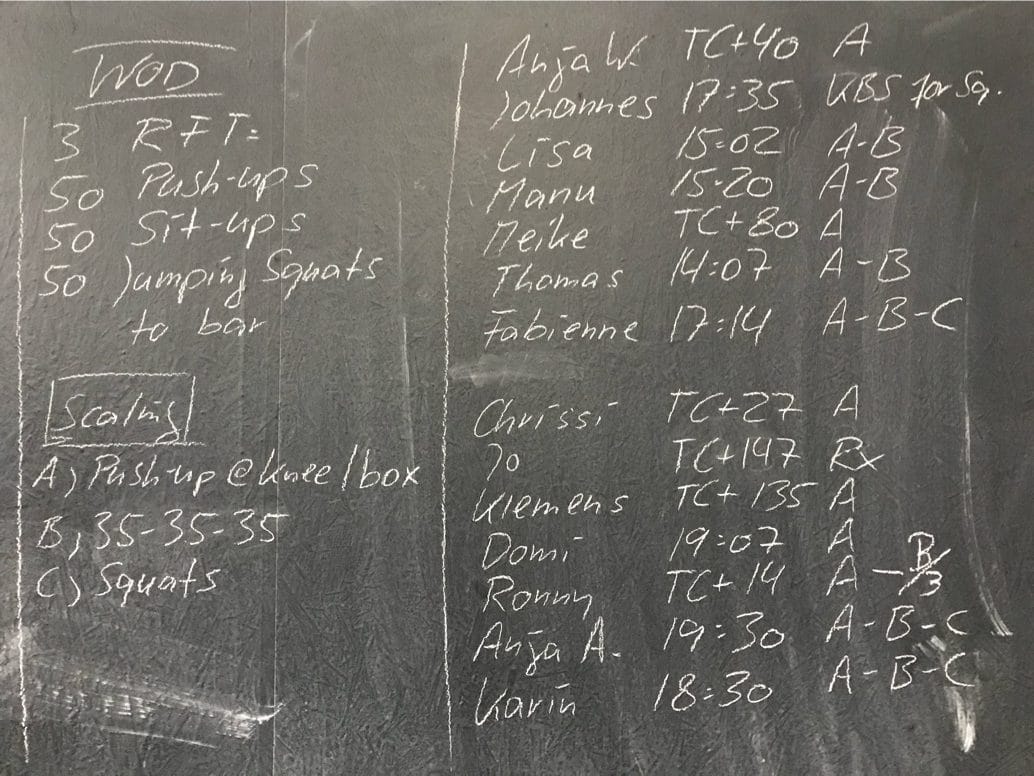 WOD
3 RFT:
50 Push-ups
50 Sit-ups
50 Jumping Squats
to bar
Scaling
A) Push-up @ knee/box
B) 35-35-35
C) Squats
Anja W. TC+40 A
Johannes 17:35 KBS for Sq.
Lisa 15:02 A-B
Manu 15:20 A-B
Meike TC+80 A
Thomas 14:07 A-B
Fabienne 17:14 A-B-C
Chrissi TC+27 A
Jo TC+147 Rx
Klemens TC+135 A
Domi 19:07 A
Ronny TC+14 A-B/3
Anja A. 19:30 A-B-C
Karin 18:30 A-B-C